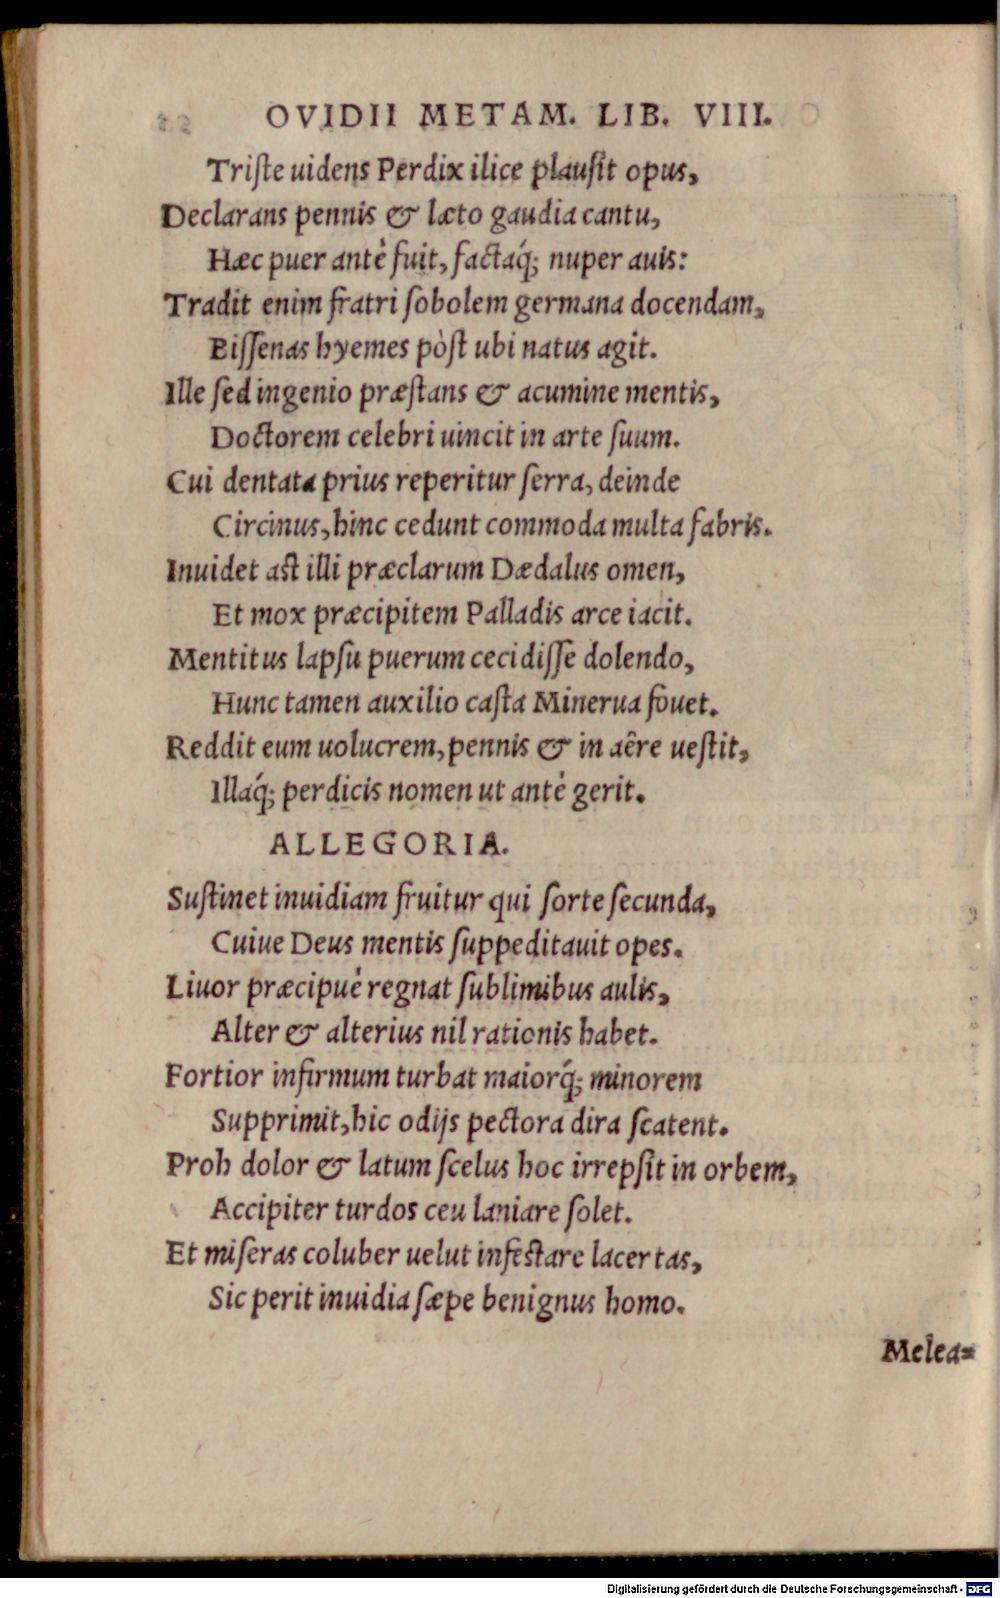 OVIDII METAM. LIB. VIII.
Triſte uidens Perdix ilice plauſit opus,
Declarans pennis & læto gaudia cantu,
Hæc puer antè fuit, factaq́; nuper auis:
Tradit enim fratri ſobolem germana docendam,
Biſſenas hyemes pòſt ubi natus agit.
Ille ſed ingenio præſtans & acumine mentis,
Doctorem celebri uincit in arte ſuum.
Cui dentata prius reperitur ſerra, deinde
Circinus, hinc cedunt commoda multa fabris.
Inuidet aſt illi præclarum Dædalus omen,
Et mox præcipitem Palladis arce iacit.
Mentitus lapſu puerum cecidiſſe dolendo,
Hunc tamen auxilio caſta Minerua fouet.
Reddit eum uolucrem, pennis & in aëre ueſtit,
Illaq́; perdicis nomen ut antè gerit.
ALLEGORIA.
Suſtinet inuidiam fruitur qui ſorte ſecunda,
Cuiue Deus mentis ſuppeditauit opes.
Liuor præcipuè regnat ſublimibus aulis,
Alter & alterius nil rationis habet.
Fortior infirmum turbat maiorq́; minorem
Supprimit, hic odijs pectora dira ſcatent.
Proh dolor & latum ſcelus hoc irrepſit in orbem,
Accipiter turdos ceu laniare ſolet.
Et miſeras coluber uelut infeſtare lacertas,
Sic perit inuidia ſæpe benignus homo.
Melea-
Digitalisierung gefördert durch die Deutsche Forschungsgemeinschaft - DFG